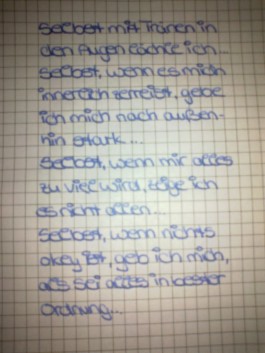 Selbst mit Tränen in
den Augen lächle ich...
Selbst, wenn es mich
innerlich zerreist, gebe
ich mich nach außen-
hin stark...
Selbst, wenn mir alles
zu viel wird, zeige ich
es nicht allen...
Selbst, wenn nichts
okey ist, geb ich mich,
als sei alles in bester
Ordnung...